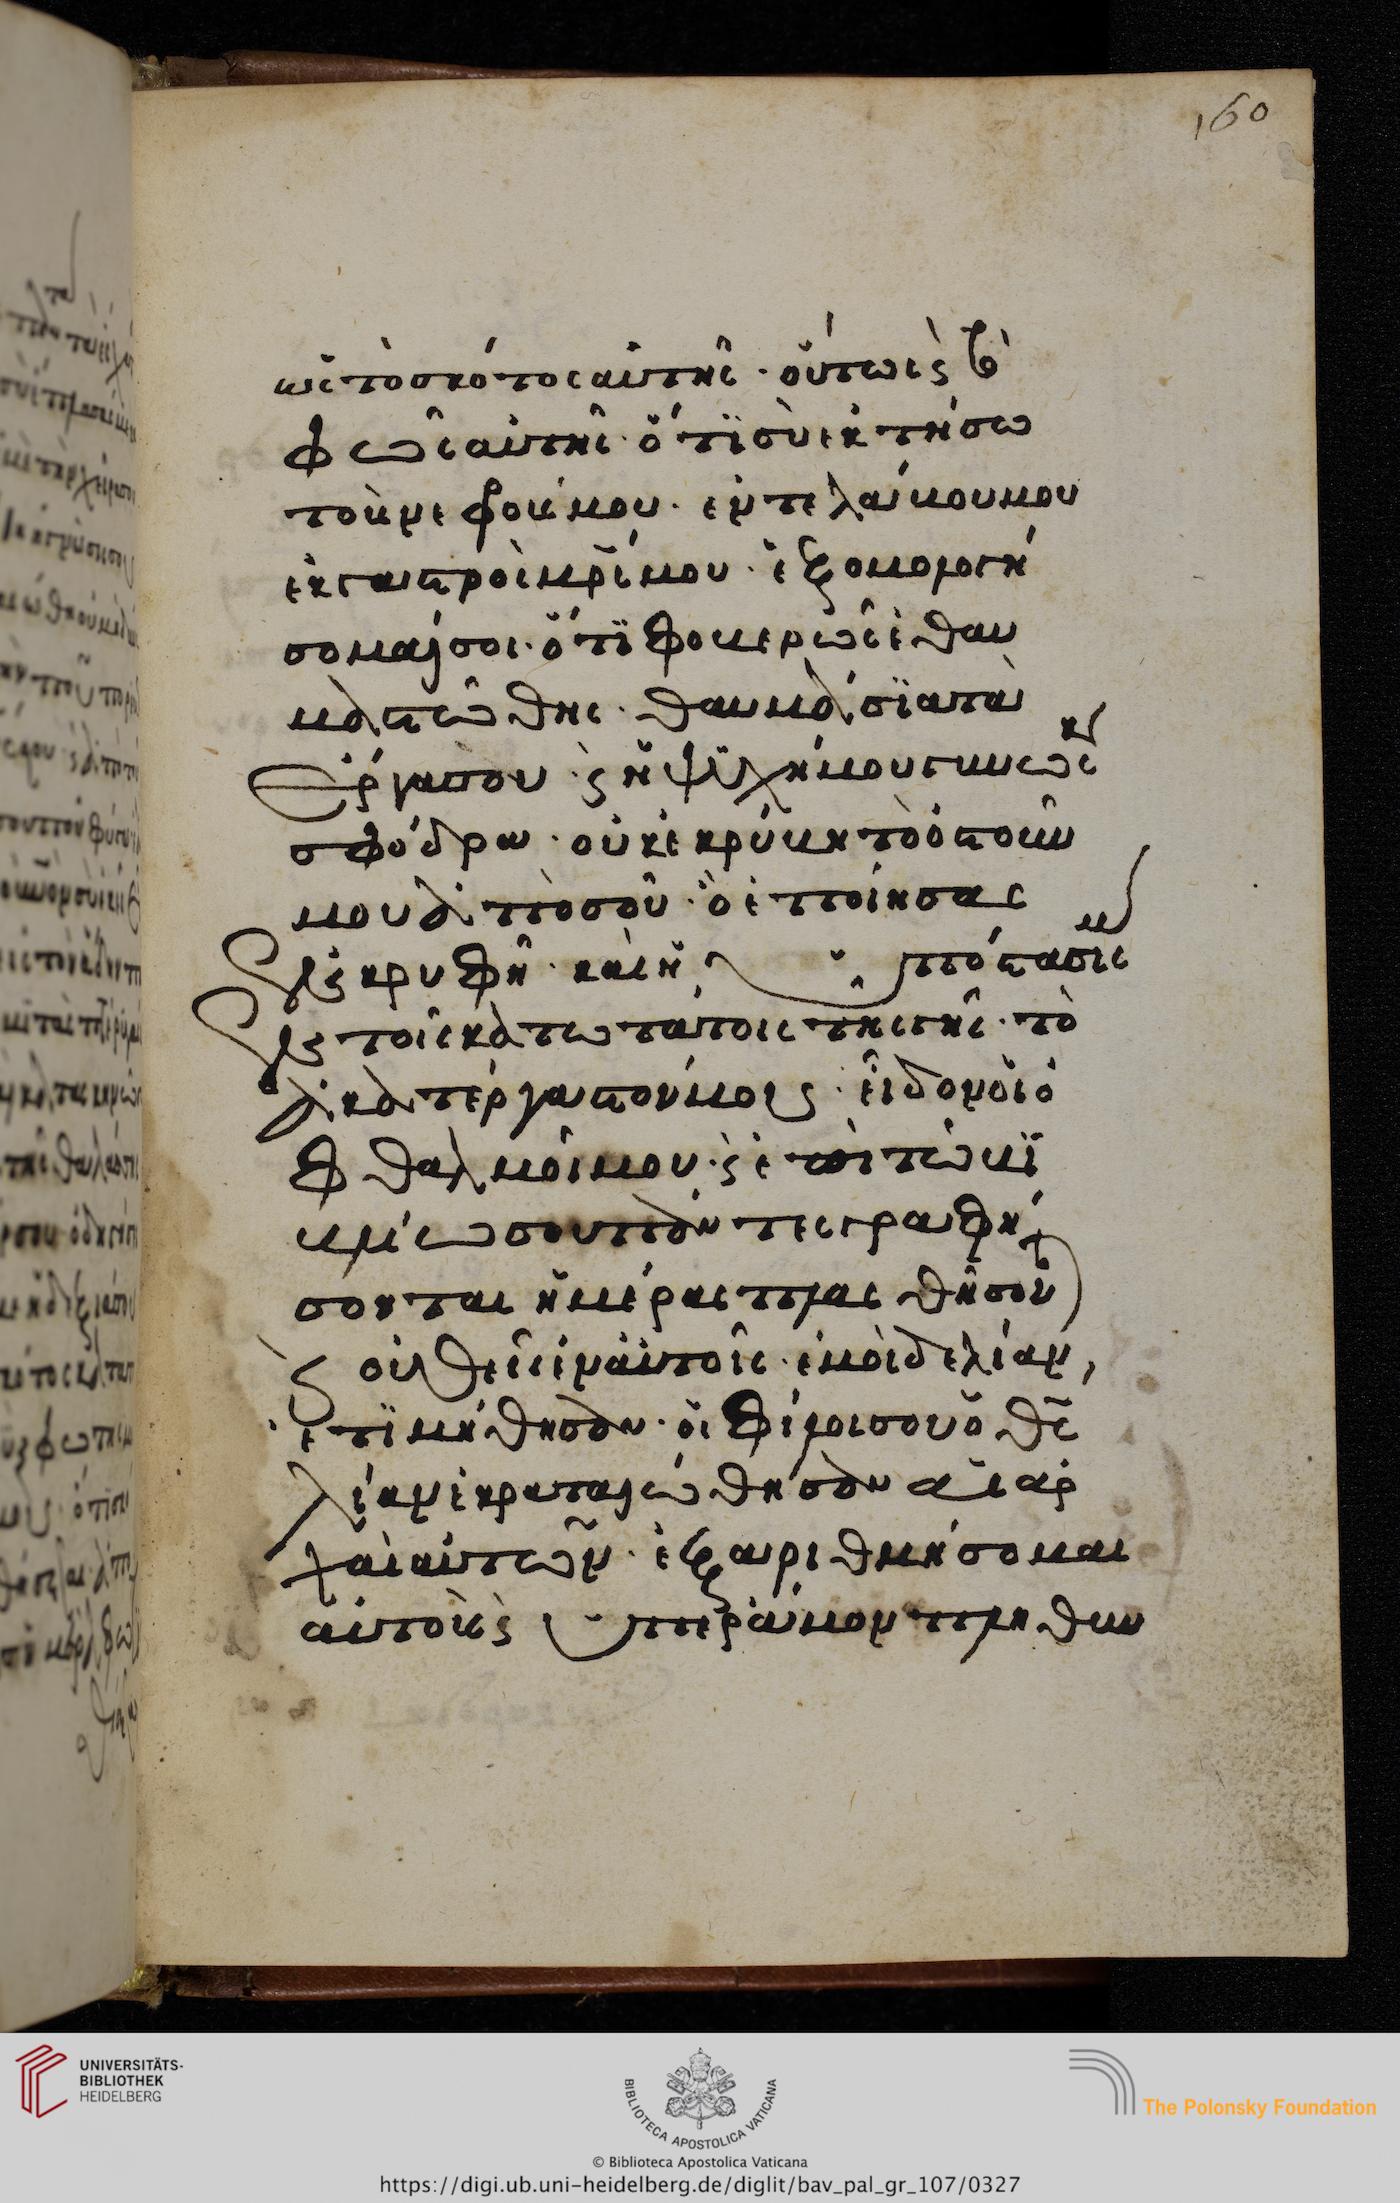 160
ὡς τὸ σκότος αὐτῆς · οὕτως ϗ τὸ
φῶς αὐτῆς · ὅτϊ σὺ ἐκτήσω
τοὺς νεφρούς μου · ἀντελάβου μου
ἐκ γαστρὸς μρ̅ς μου · ἐξομολογή
σομαί σοι · ὅτϊ φοβερῶς ἐθαυ
μαστώθης · θαυμάσϊα τὰ
ἔργα σου · ϗ ἡ ψϋχή μου γινώσκει
σφόδρα · οὐκ ἐκρύβη τὸ ὀστοῦν
μου ἀπὸ σοῦ · ὃ ἐποίησας
ἐν κρυφῇ · καὶ ἡ ὑπόστασίς μου
ἐν τοῖς κατωτάτοις τῆς γῆς · τὸ
ἀκατέργαστόν μου · εἶδον οἱ ὀ
φθαλμοί μου · ϗ ἐπὶ τὸ βϊ
βλίον σου πάντες γραφή
σονται ἡμέρας πλασθήσον
ϗ οὐθεὶς ἐν αὐτοῖς · ἐμοὶ δὲ λίαν,
ἐτϊμήθησαν · οἱ φίλοι σου ὁ θς̅
λίαν ἐκραταιώθησαν αἱ ἀρ
χαὶ αὐτῶν · ἐξαριθμήσομαι
αὐτοὺς ϗ ὑπὲρ ἄμμον πληθυν
UNIVERSITÄTS-
BIBLIOTHEK
HEIDELBERG
BIBLIOTECA APOSTOLICA VATICANA
The Polonsky Foundation
© Biblioteca Apostolica Vaticana
https://digi.ub.uni-heidelberg.de/diglit/bav_pal_gr_107/0327